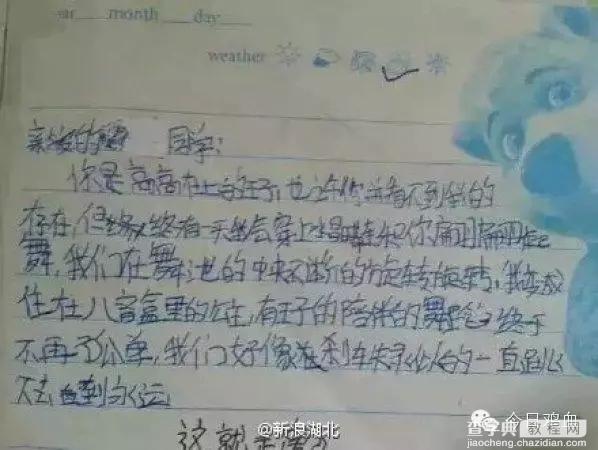 ear month day
weather
亲爱的 同学:
你是高高在上的王子,也许你并看不到我的
存在,但终有一天我会穿上水晶鞋和你翩翩起
舞,我们在舞池的中央不停的旋转旋转,我变成
住在八音盒里的公主,有王子的陪伴的舞蹈终于
不再孤单,我们好像刹车失灵似的一直
下去 到永远
这就是
@新浪湖北
今日鸡血
查字典 教程网
jiaocheng.chazidian.com